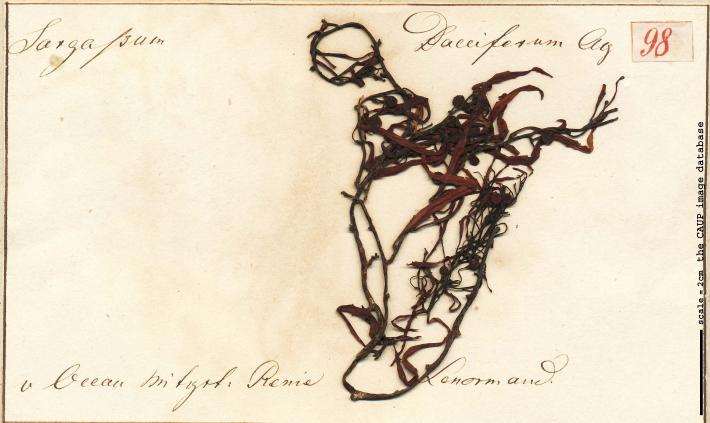 Sargassum Bacciferum Ag 98
v Ocean Lenormand.
scale = 2cm the CAUP image database